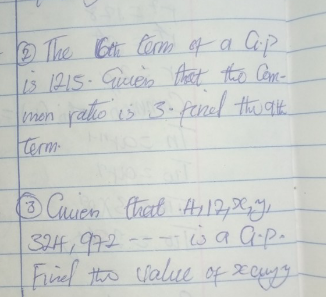 ② The 6th term of a G.P
is 1215. Given that the Com-
mon ratio is 3. find the 9th
term.
③ Given that 4, 12, x, y,
324, 972 ---- is a G.P.
Find the value of x and y